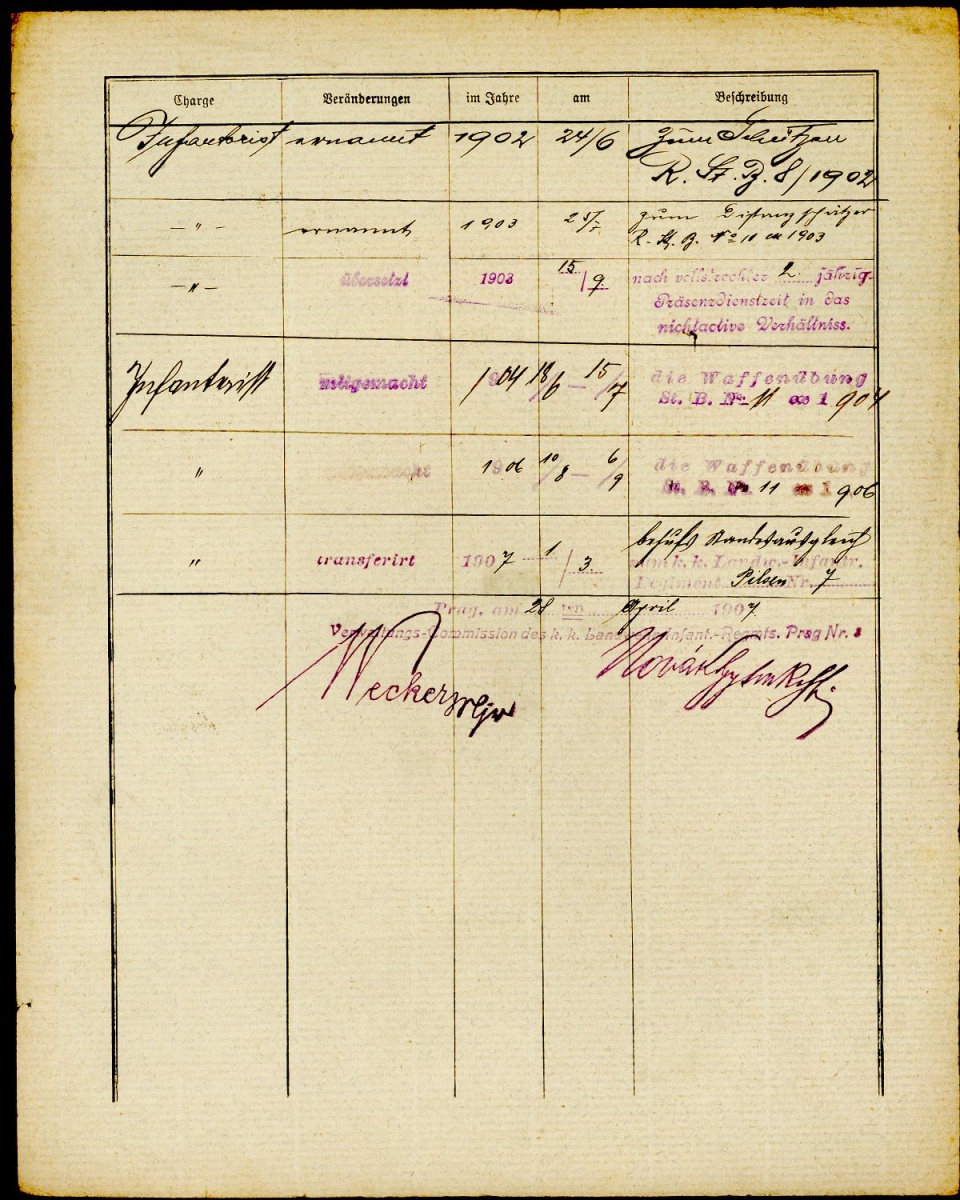 Charge Veränderungen im Jahre am Beschreibung
Infanterist ernannt 1902 24/6 zum Schützen
R. St. B. 8/1902
—„— ernannt 1903 25/5 zum Distanzschätzer
R. St. B. No 11 ex 1903
—„— übersetzt 1903 15/9 nach vollstreckter 2 jährig.
Präsenzdienstzeit in das
nichtactive Verhältniss.
Infanterist mitgemacht 1904 18/6 — 15/7 die Waffenübung
St. B. Nr. 11 ex 1904
„ mitgemacht 1906 10/8 — 6/9 die Waffenübung
St. B. Nr. 11 ex 1906
„ transferirt 1907 1/3 behufs Standesausgleich
zum k. k. Landw.-Infantr.
Regiment Pilsen Nr. 7
Prag, am 28 ten April 1907
Verwaltungs-Commission des k. k. Landwehrinfant.-Regmts. Prag Nr. 8
Wecker Mjr
Novák